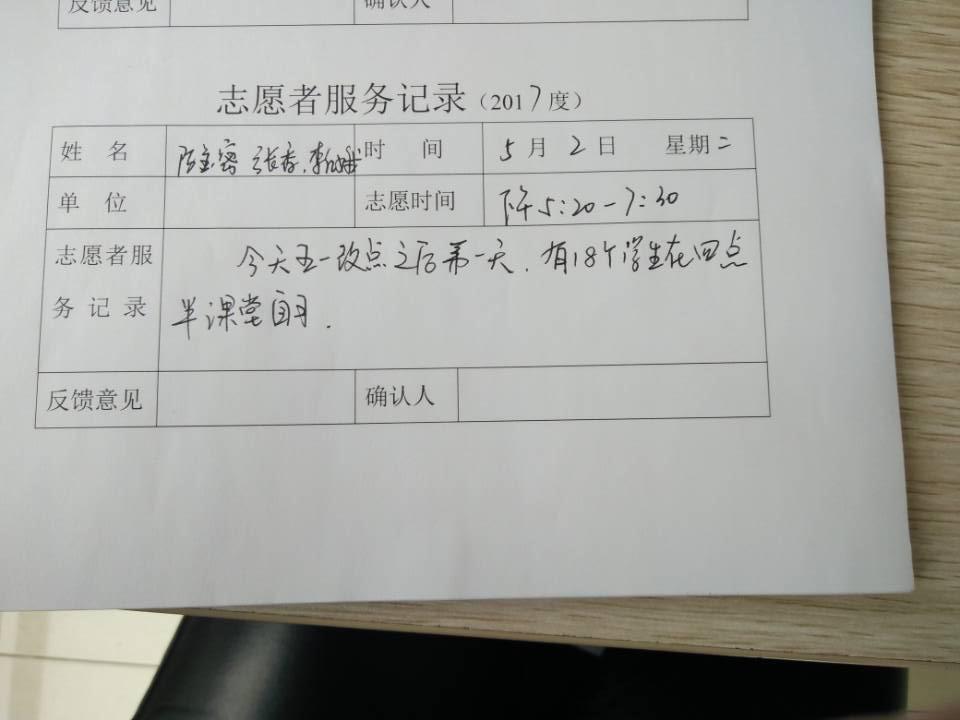 反馈意见 确认人
志愿者服务记录（2017度）
姓 名 陈玉密 张春. 时 间 5月2日 星期二
单 位 志愿时间 下午5:20-7:30
志愿者服 今天五一改点之后第一天.有18个学生在四点
务 记 录 半课堂自习.
反馈意见 确认人